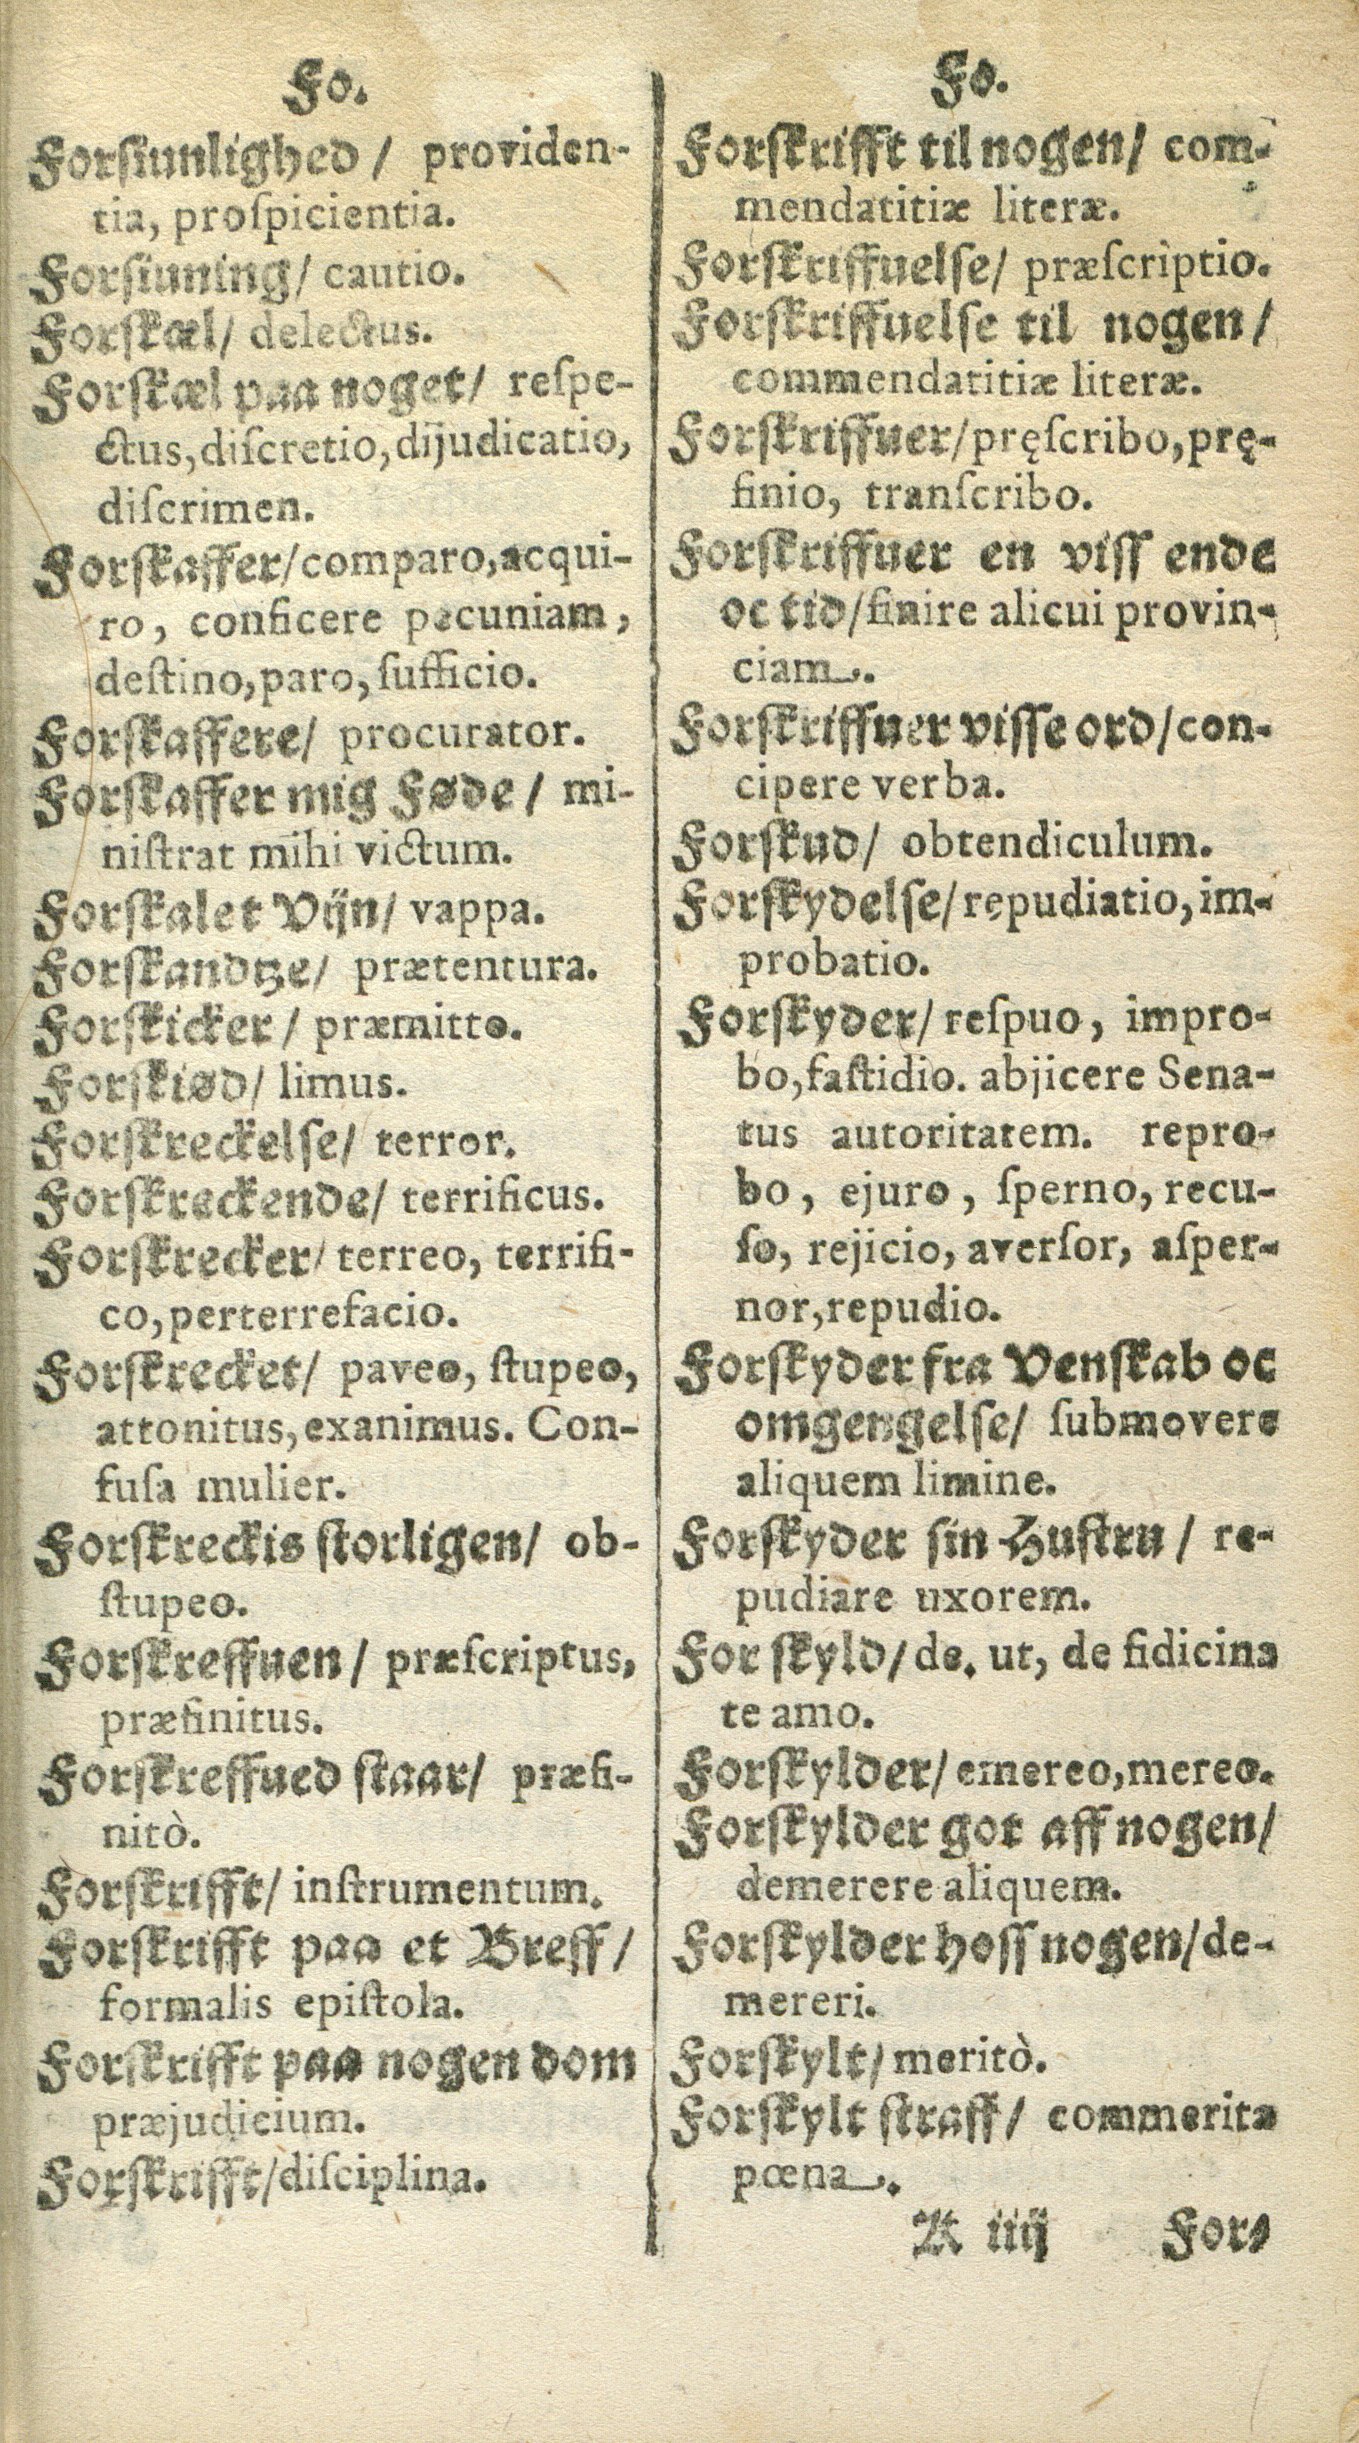 Fo.
Forsiunlighed / providen-
tia, proſpicientia.
Forsiuning/ cautio.
Forskæl/ delectus.
Forskæl paa noget/ reſpe-
ctus, diſcretio, dijudicatio,
diſcrimen.
Forskaffer/comparo, acqui-
ro, conficere pecuniam,
deſtino, paro, ſufficio.
Forskaffere/ procurator.
Forskaffer mig Føde / mi-
niſtrat mihi victum.
Forskalet Vijn/ vappa.
Forskandtze/ prætentura.
Forskicker / præmitto.
Forskiød/ limus.
Forskreckelse/ terror.
Forskreckende/ terrificus.
Forskrecker/ terreo, terrifi-
co, perterrefacio.
Forskrecket/ paveo, ſtupeo,
attonitus, exanimus. Con-
fuſa mulier.
Forskreckis storligen/ ob-
ſtupeo.
Forskreffuen / præſcriptus,
præfinitus.
Forskreffued staar/ præfi-
nitò.
Forskrifft/ inſtrumentum.
Forskrifft paa et Breff /
formalis epiſtola.
Forskrifft paa nogen dom
præjudicium.
Forskrifft/diſciplina.
Fo.
Forskrifft til nogen/ com-
mendatitiæ literæ.
Forskriffuelse/ præſcriptio.
Forskriffuelse til nogen /
commendatitiæ literæ.
Forskriffuer/pręſcribo, prę-
finio, tranſcribo.
Forskriffuer en viss ende
oc tid/finire alicui provin-
ciam.
Forskriffuer visse ord/con-
cipere verba.
Forskud/ obtendiculum.
Forskydelse/repudiatio, im-
probatio.
Forskyder/ reſpuo, impro-
bo, faſtidio. abjicere Sena-
tus autoritatem. repro-
bo, ejuro, ſperno, recu-
ſo, rejicio, averſor, aſper-
nor, repudio.
Forskyder fra Venskab oc
omgengelse/ ſubmovere
aliquem limine.
Forskyder sin Hustru / re-
pudiare uxorem.
For skyld/de. ut, de fidicina
te amo.
Forskylder/ emereo, mereo.
Forskylder got aff nogen/
demerere aliquem.
Forskylder hoss nogen/de-
mereri.
Forskylt/ meritò.
Forskylt straff/ commerita
pœna.
K iiij For-